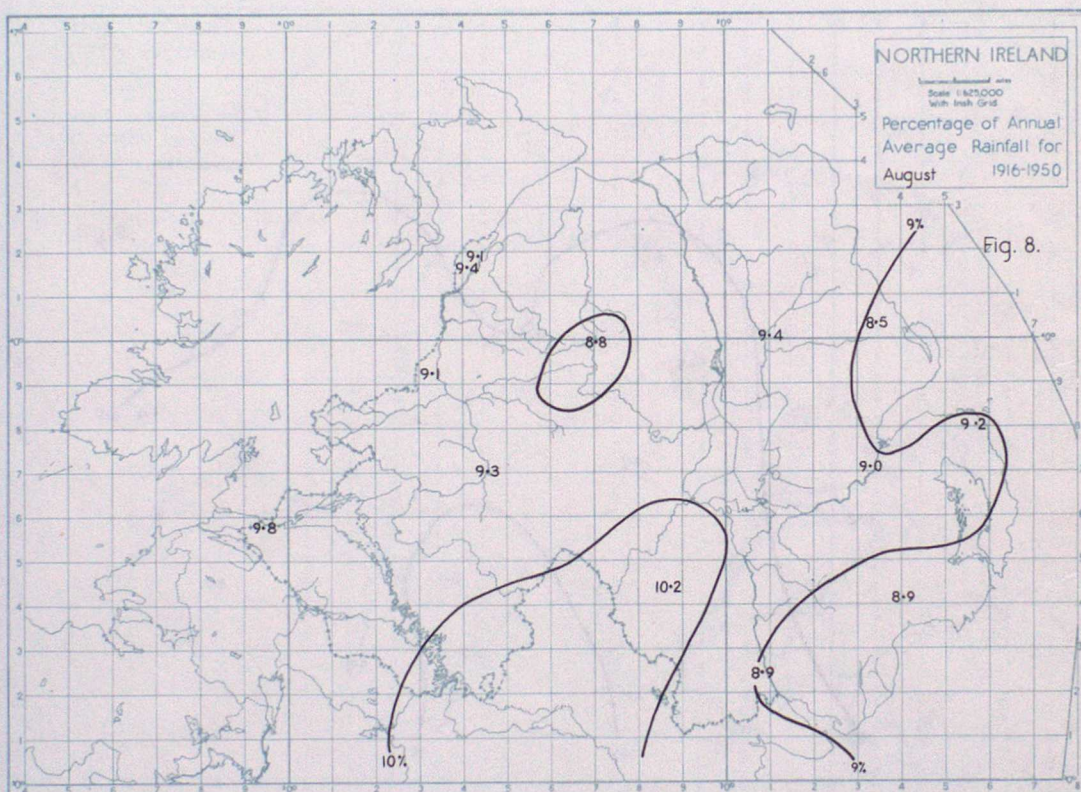 NORTHERN IRELAND
Scale 1:625,000
With Irish Grid
Percentage of Annual
Average Rainfall for
August 1916-1950
Fig. 8.
9%
9·1
9·4
8·5
8·8
9·4
9·1
9·2
9·0
9·3
9·8
10·2
8·9
8·9
10%
9%